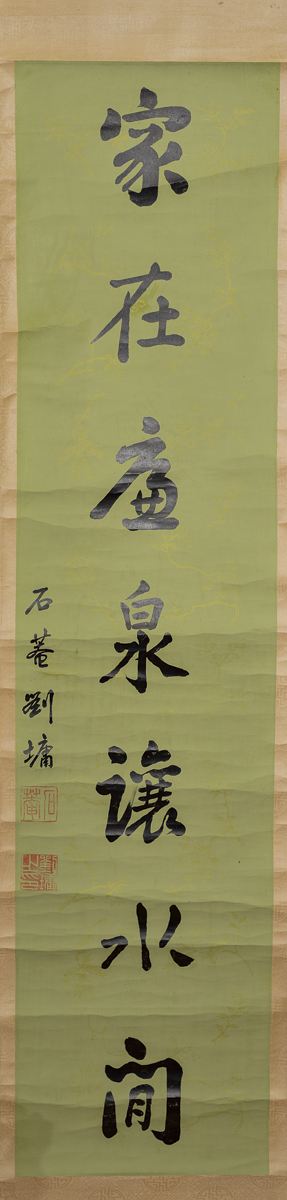 家在廉泉讓水間
石菴劉墉
石菴
劉墉之印